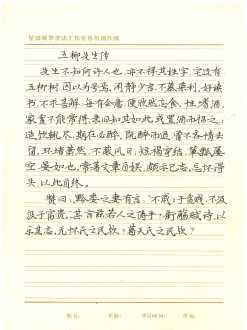 五柳先生传
先生不知何许人也,亦不详其姓字,宅边有
五柳树,因以为号焉,闲静少言,不慕荣利,好读
书,不求甚解,每有会意,便欣然忘食,性嗜酒,
家贫不能常得,亲旧知其如此,或置酒而招之;
造饮辄尽,期在必醉,既醉而退,曾不吝情去
留,环堵萧然,不蔽风日,短褐穿结,箪瓢屡
空,晏如也,常著文章自娱,颇示己志,忘怀得
失,以此自终。
赞曰,黔娄之妻有言,"不戚戚于贫贱,不汲
汲于富贵",其言兹若人之俦乎?衔觞赋诗,以
乐其志,无怀氏之民欤?葛天氏之民欤?